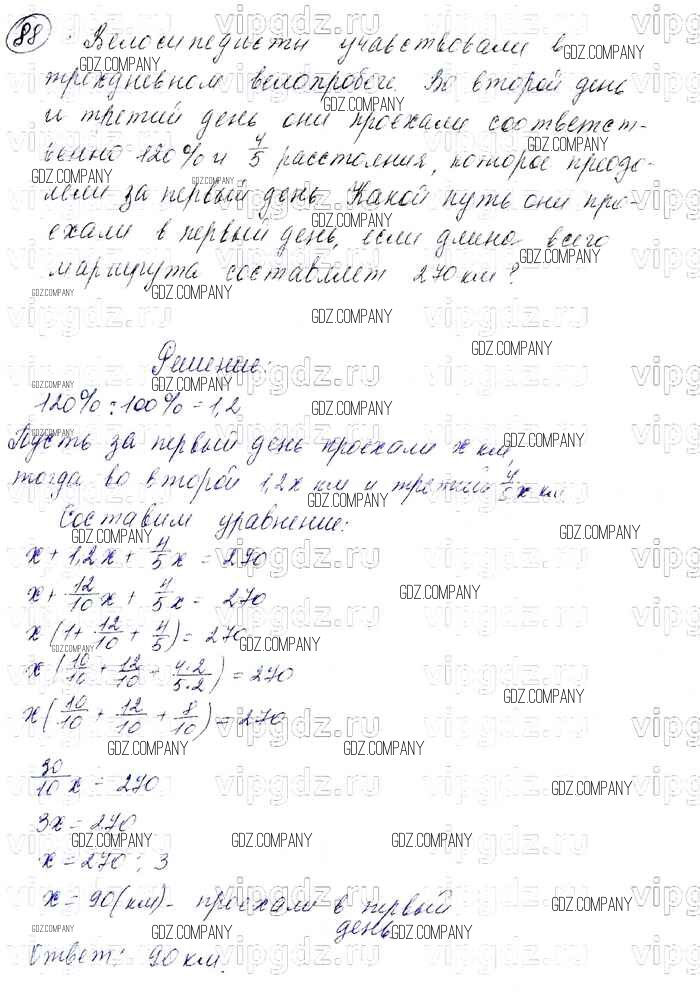 88 Велосипедисты учавствовали в
трехдневном велопробеге. Во второй день
и третий день они проехали соответст-
венно 120% и 4/5 расстояния, которое преодо-
лели за первый день. Какой путь они про-
ехали в первый день, если длина всего
маршрута составляет 270 км?
Решение:
120% : 100% = 1,2
Пусть за первый день проехали x км,
тогда во второй 1,2x км и третий 4/5 x км.
Составим уравнение:
x + 1,2x + 4/5 x = 270
x + 12/10 x + 4/5 x = 270
x (1 + 12/10 + 4/5) = 270
x (10/10 + 12/10 + 4·2/5·2) = 270
x (10/10 + 12/10 + 8/10) = 270
30/10 x = 270
3x = 270
x = 270 : 3
x = 90 (км) - проехали в первый
день
Ответ: 90 км.
vipgdz.ru
GDZ.COMPANY